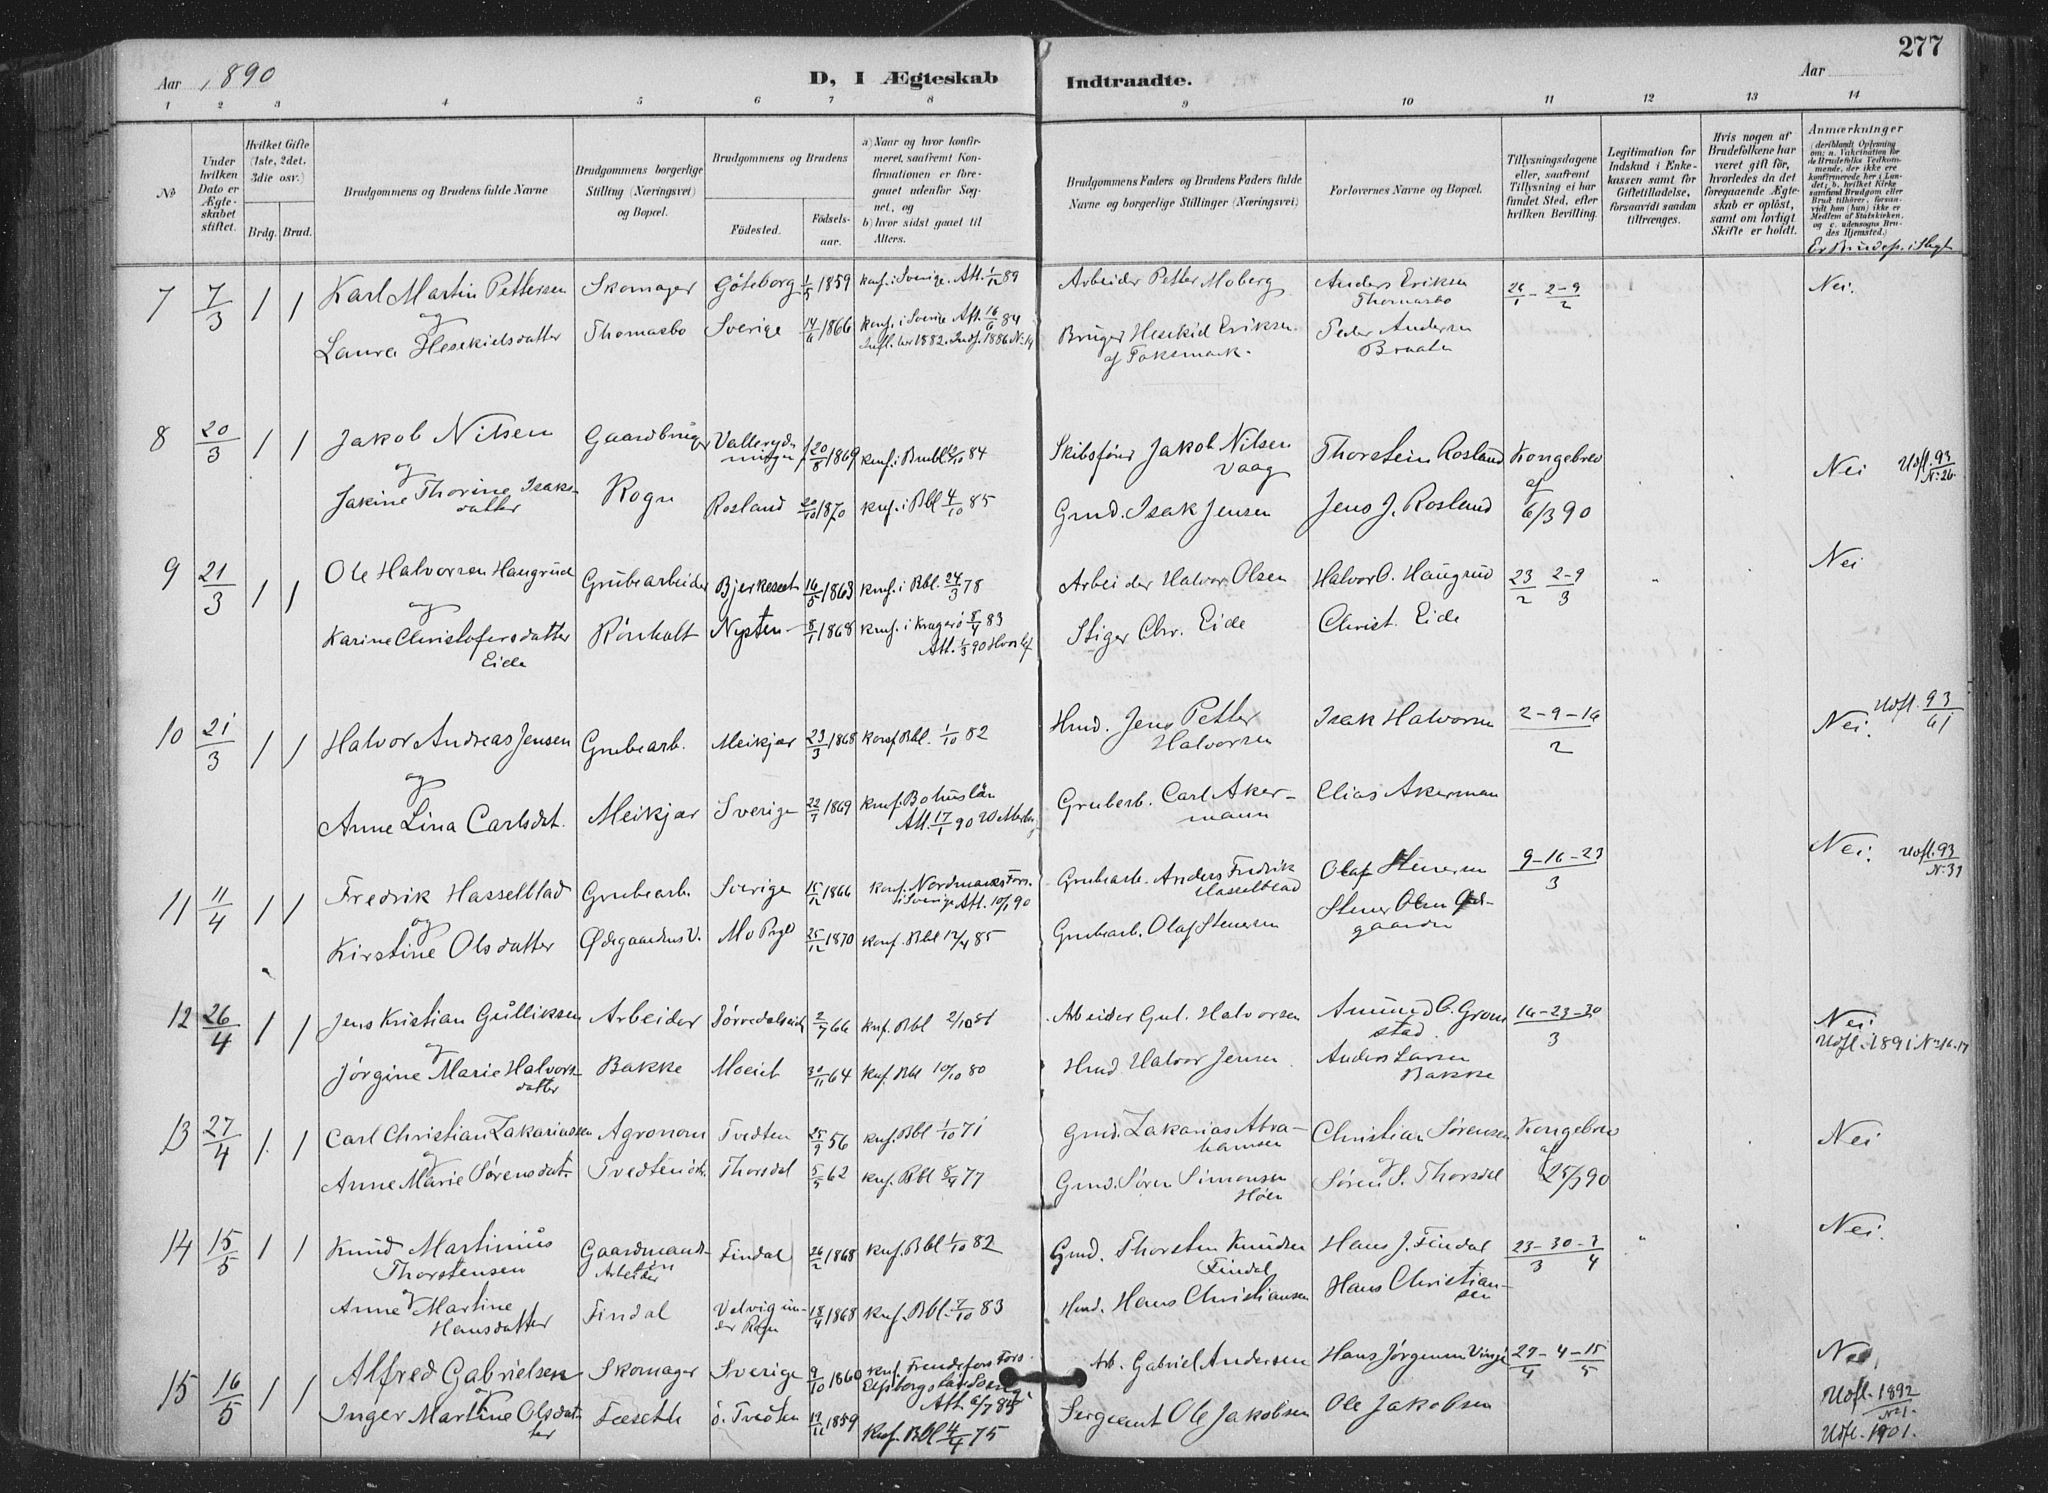 277
Aar 1890 D, I Ægteskab Indtraadte. Aar
1 2 3 4 5 6 7 8 9 10 11 12 13 14
No
Under hvilken Dato er Ægteskabet stiftet.
Hvilket Gifte (1ste, 2det, 3die osv.)
Brdg. Brud.
Brudgommens og Brudens fulde Navne
Brudgommens borgerlige Stilling (Næringsvei) og Bopæl.
Brudgommens og Brudens
Fødested.
Fødselsaar.
a) Naar og hvor konfirmeret, saafremt Konfirmationen er foregaaet udenfor Sognet, og
b) hvor sidst gaaet til Alters.
Brudgommens Faders og Brudens Faders fulde Navne og borgerlige Stillinger (Næringsvei)
Forlovernes Navne og Bopæl.
Tillysningsdagene eller, saafremt Tillysning ei har fundet Sted, efter hvilken Bevilling.
Legitimation for Indskud i Enkekassen samt for Giftetilladelse, forsaavidt saadan tiltrænges.
Hvis nogen af Brudefolkene har været gift før, hvorledes da det foregaaende Ægteskab er opløst, samt om lovligt Skifte er holdt.
Anmærkninger
(deriblandt Oplysning om: a. Vakcination for de Brudefolks Vedkommende, der ikke ere konfirmerede her i Landet; b. hvilket Kirkesamfund Brudgom eller Brud tilhører, forsaavidt han (hun) ikke er Medlem af Statskirken, og c. udensogns Brudes Hjemsted.)
Er Brudef. i Slegt
7 7/3 1 1 Karl Martin Pettersen Skomager Göteborg 1/5 1859 konf. i Sverige. Att. 1/12 89 Arbeider Petter Moberg Anders Eriksen Thomasbo 26/1 - 2-9/2 Nei.
og
Laura Hesekielsdatter Thomasbo Sverige 14/6 1866 konf. i Sverige Att. 16/6 84 Bruger Hesekiel Eriksen Peder Andersen
Indfl. her 1882. Indf. 1886 No 14 af Taksmark. Braaten
8 20/3 1 1 Jakob Nilsen Gaardbruger 20/8 1869 konf. i Brubl. 84 Skibsfører Jakob Nilsen Vaag Thorstein Rosland Kongebrev Nei Udfl. 93 No 26
og af
Jakine Thorine Isaksdatter Rogn Rosland 20/10 1870 konf. i Bbl 4/10 85 Gmd. Isak Jensen Jens J. Rosland 6/3 90
9 21/3 1 1 Ole Halvorsen Haugrud Grubearbeider Bjerkeset 16/5 1863 konf. i Bbl. 24/3 78 Arbeider Halvor Olsen Halvor O. Haugrud 23/2 2-9/3 Nei
og
Karine Christofersdatter Eide Rönholt Nysten 8/1 1868 konf. i Kragerö 8/4 83 Stiger Chr. Eide Christ. Eide
Att. 1/3 90
10 21/3 1 1 Halvor Andreas Jensen Grubearb. Meikjær 23/3 1868 konf Bbl. 1/10 82 Hmd. Jens Petter Halvorsen Isak Halvorsen 2-9-16/2 Nei. Udfl. 93/61
og
Anne Lina Carlsdat. Meikjær Sverige 22/7 1869 konf. Bohuslän Grubearb. Carl Akermann Elias Akerman
Att. 17/1 90
11 11/4 1 1 Fredrik Hasselblad Grubearb. Sverige 15/12 1866 konf. Nordmarks Fors. i Sverige Att. 10/1 90 Grubearb. Anders Fredrik Hasselblad Olaf Stenersen 9-16-23/3 Nei. Udfl. 93 No 39
og
Kirstine Olsdatter Ødegaardens V. Mo 25/12 1870 konf. Bbl 12/4 85 Grubearb. Olaf Stenersen Stener Olsen Ødegaarden
12 26/4 1 1 Jens Kristian Gulliksen Arbeider Törredalseie 2/7 66 knf. Bbl 2/10 81 Arbeider Gul. Halvorsen Amund O. Gromstad 16-23-30/3 Nei
og Udfl. i 1891 No 16-17
Jørgine Marie Halvorsdatter Bakke Moeiet 30/11 64 knf. Bbl 10/10 80 Hmd. Halvor Jensen Anders Larsen Bakke
13 27/4 1 1 Carl Christian Zakariassen Agronom Tvedten 25/9 56 knf. Bbl 1/10 71 Gmd. Zakarias Abrahamsen Christian Sørensen Kongebrev Nei
og af
Anne Marie Sørensdat. Thorsdal 5/3 62 knf. Bbl 8/4 77 Gmd. Søren Simonsen Høen Søren S. Thorsdal 25/3 90
14 15/5 1 1 Knud Martinius Thorstensen Gaardmandssön Arbeider Findal 26/2 1868 knf. Bbl 1/10 82 Gmd. Thorsten Knudsen Findal Hans J. Findal 23-30/3-3/4 Nei.
og
Anne Martine Hansdatter Findal Valvig under Rogn 18/4 1868 knf. Bbl. 7/10 83 Hmd. Hans Christiansen Hans Christiansen
15 16/5 1 1 Alfred Gabrielsen Skomager Sverige 9/10 1860 knf. Fors. Arb. Gabriel Andersen Hans Jørgensen 27/4 - 4-15/5 Nei
og Elfsborgs län Att. 6/7 85 Udfl. 1892 No 1.
Inger Martine Olsdatter Fæseth ö. Tvedten 19/11 1859 Knf. Bbl 4/4 75 Sergeant Ole Jakobsen Ole Jakobsen
Udfl. 1901.